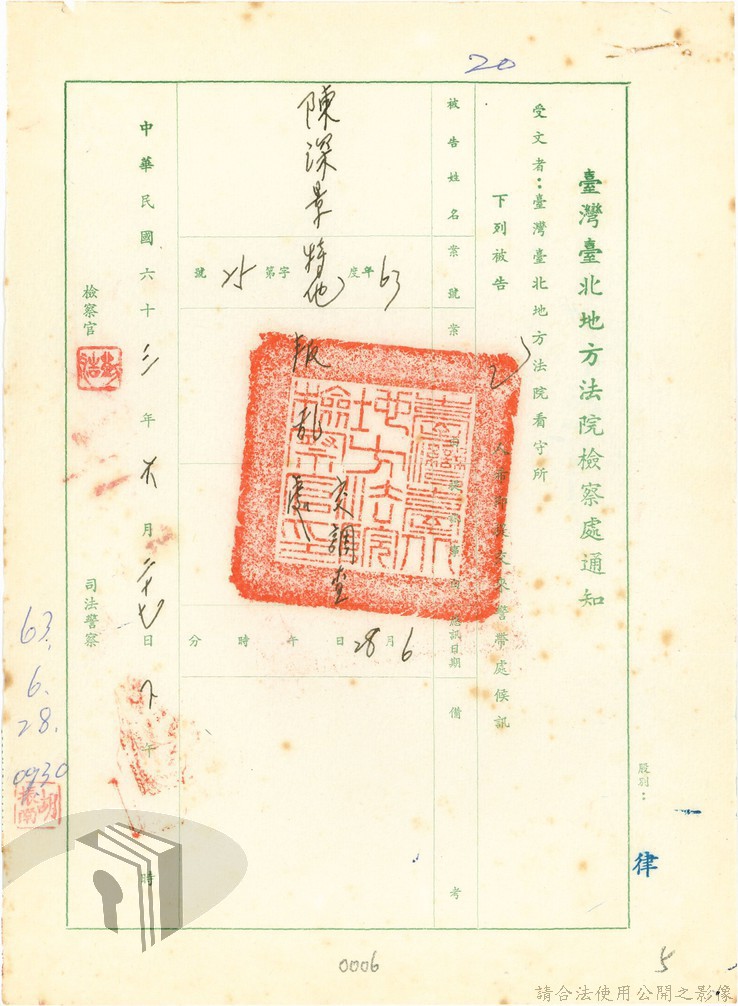 20
臺灣臺北地方法院檢察處通知
受文者：臺灣臺北地方法院看守所
下列被告
交來警帶處候訊
被告姓名
陳深景
案號
63年度特他字第25號
案
叛亂
交調查處
訊日期
6月28日 午 時 分
備考
中華民國六十三年六月二十七日下午 時
檢察官
司法警察
63.
6.
28.
0930
股別：
律
0006
5
請合法使用公開之影像